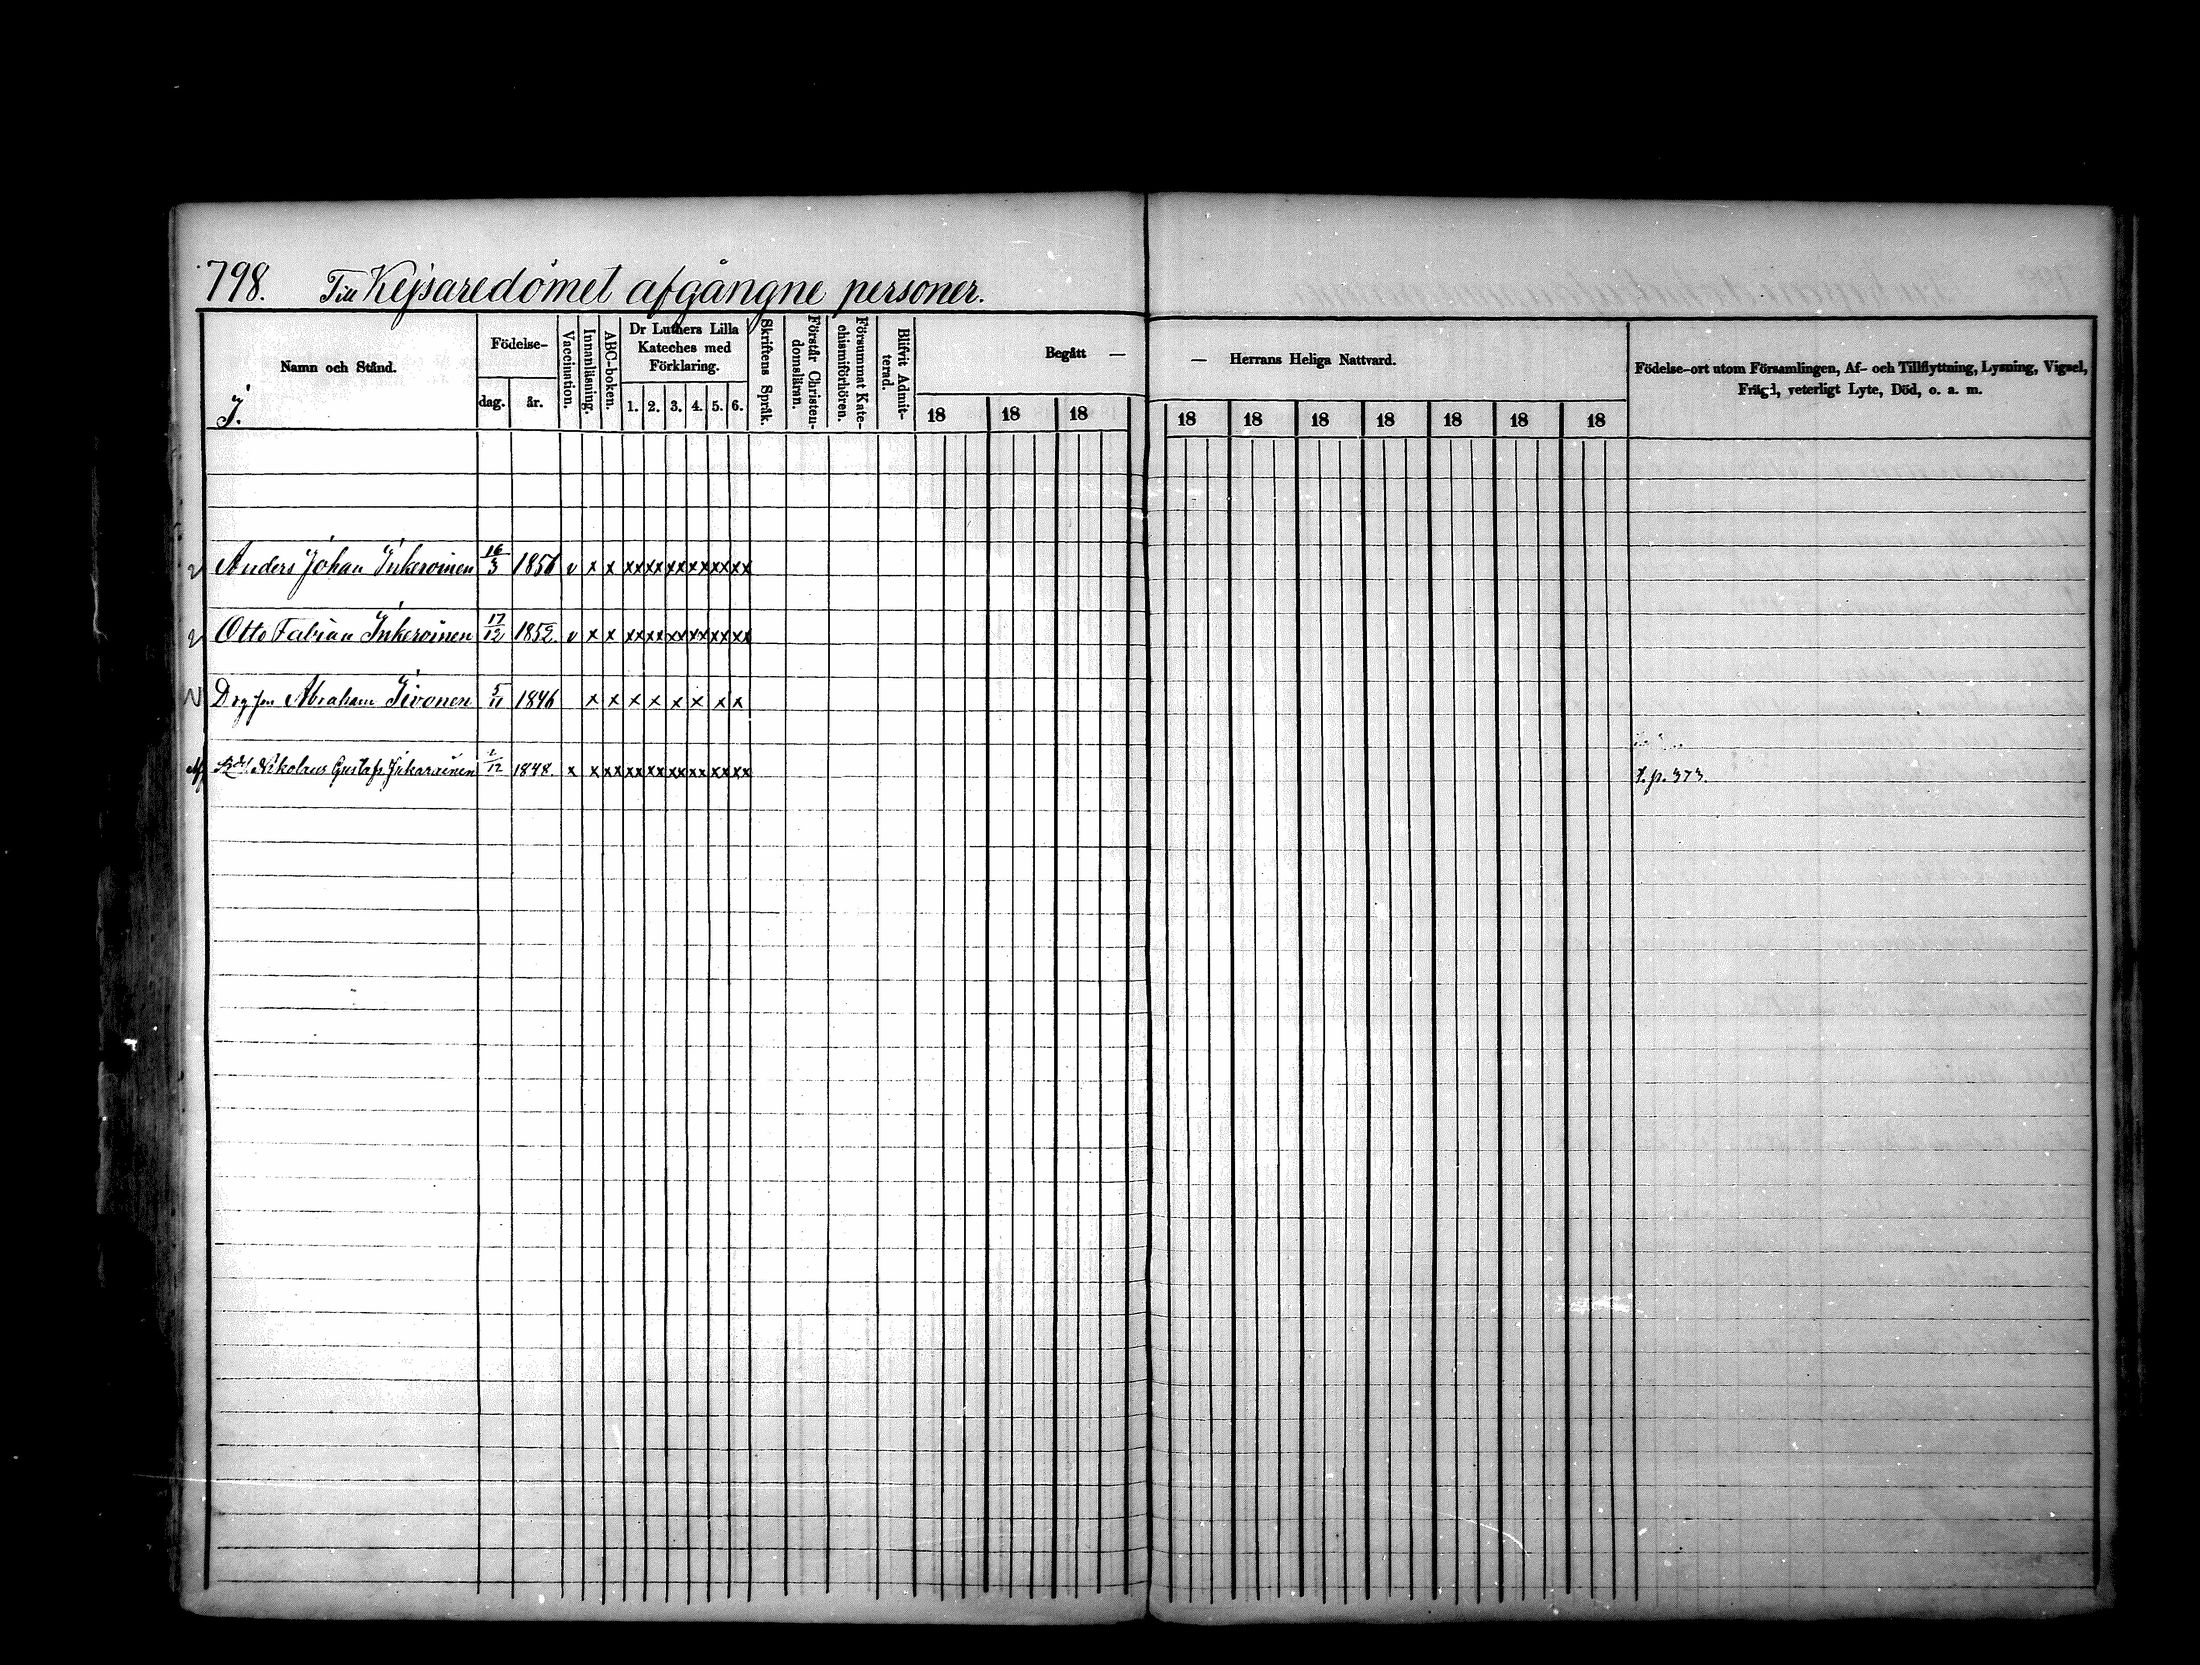 798. Till Kejsaredömet afgångne personer.
Namn och Stånd.
I.
Födelse-
dag. år.
Vaccination.
Innanläsning.
ABC-boken.
Dr Luthers Lilla
Kateches med
Förklaring.
1. 2. 3. 4. 5. 6.
Skriftens Språk.
Förstår Christen-
domsläran.
Försummat Kate-
chismiförhören.
Blifvit Admit-
terad.
Begått —
18 18 18
— Herrans Heliga Nattvard.
18 18 18 18 18 18 18
Födelse-ort utom Församlingen, Af- och Tillflyttning, Lysning, Vigsel,
Frägd, veterligt Lyte, Död, o. a. m.
Anders Johan Inkeroinen 16/3 1856 v x x xx xx xx xx xx xx
Otto Fabian Inkeroinen 17/12 1852 v x x xx xx xx xx xx xx
Drg Jon Abraham Iivonen 5/11 1846 x x x x x x x x
Nikolaus Gustaf Inkarainen 1/12 1848. x x xx xx xx xx xx xx xx f. p. 373.